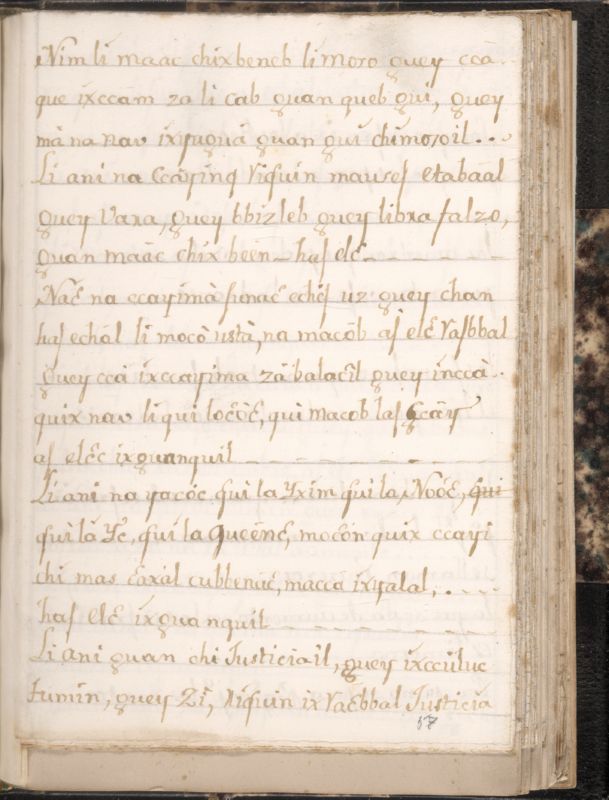 Nim li maac chixbeneb li moro guey cca..
que ixccam za li cab guan queb gui, guey
mà na nav ixyuguá guan gui chimoroil...
Li ani na Ccàyinq Viquin mausef etabaal
guey Vara, guey bbizleb guey libra falzo,
guan maac chix been haf ele
Nae na ccayimà funae echéf uz guey chan
haf echál li mocò ustà, na macòb af ele Vafbbal
guey ccà ixccayima zàbalacil guey inccà.
quix nav li qui loèòe, qui macob laf Ccày
af elec ixguanquil
Li ani na yacóc qui la Yxim qui la Nooe,
qui la Ye, qui la Queene, mocòn quix ccayi
chi mas eaxàl cubbenae, macca ixyalal,..
haf ele ixguanquil
Li ani guan chi Justiciail, guey ixcculuc
tumin, guey Zi, Viquin ix Vaebbal Justicia
57